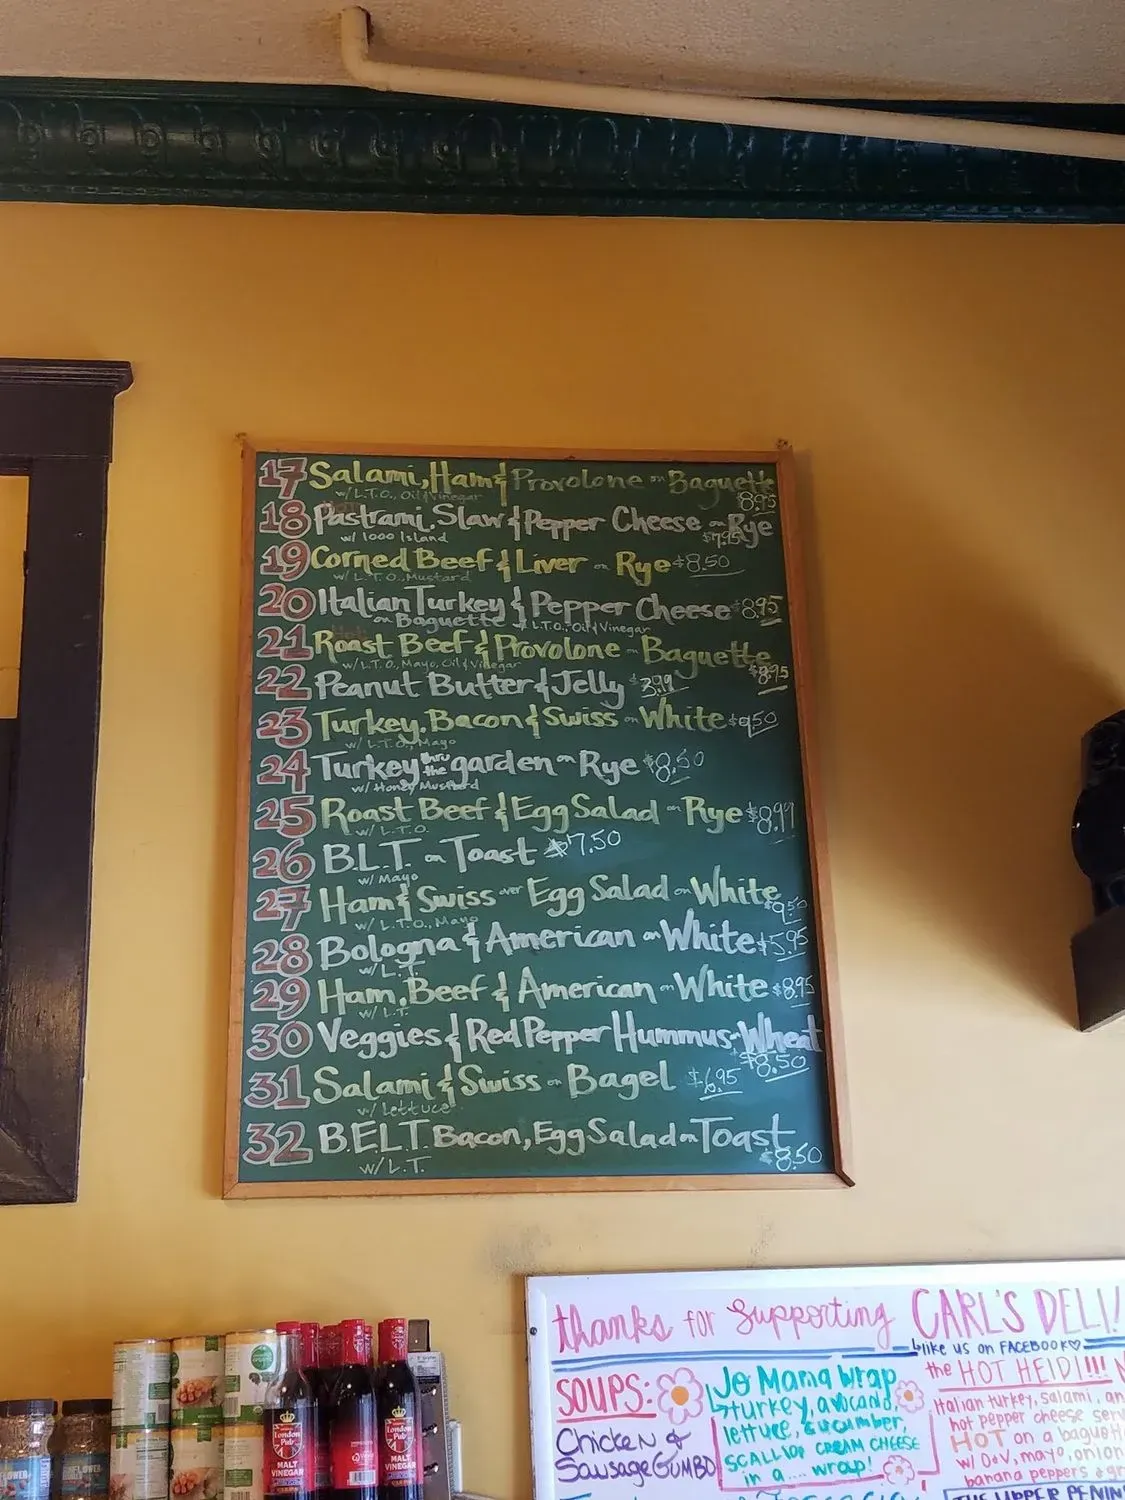 17 Salami, Ham & Provolone on Baguette
w/ L.T.O., Oil & Vinegar $8.95
18 Pastrami, Slaw & Pepper Cheese on Rye
w/ 1000 Island $7.95
19 Corned Beef & Liver on Rye $8.50
w/ L.T.O., Mustard
20 Italian Turkey & Pepper Cheese $8.95
on Baguette w/ L.T.O., Oil & Vinegar
21 Roast Beef & Provolone on Baguette
w/ L.T.O., Mayo, Oil & Vinegar $8.95
22 Peanut Butter & Jelly $3.99
23 Turkey, Bacon & Swiss on White $9.50
w/ L.T.O., Mayo
24 Turkey thru the garden on Rye $8.50
w/ Honey Mustard
25 Roast Beef & Egg Salad on Rye $8.99
w/ L.T.O.
26 B.L.T. on Toast $7.50
w/ Mayo
27 Ham & Swiss over Egg Salad on White
w/ L.T.O., Mayo $9.50
28 Bologna & American on White $5.95
w/ L.T.
29 Ham, Beef & American on White $8.95
w/ L.T.
30 Veggies & Red Pepper Hummus on Wheat
$8.50
31 Salami & Swiss on Bagel $6.95
w/ Lettuce
32 B.E.L.T. Bacon, Egg Salad on Toast
w/ L.T. $8.50
thanks for supporting CARL'S DELI!
like us on FACEBOOK
SOUPS:
Chicken &
Sausage GUMBO
Jo Mama Wrap
turkey, avocado,
lettuce, cucumber,
SCALLION CREAM CHEESE
in a .... wrap!
the HOT HEIDI!!!
Italian turkey, salami, an
hot pepper cheese serv
HOT on a baguett
w/ O&V, mayo, onion
banana peppers & gr
THE UPPER PENIN
London Pub
MALT VINEGAR
MALT VINEGAR